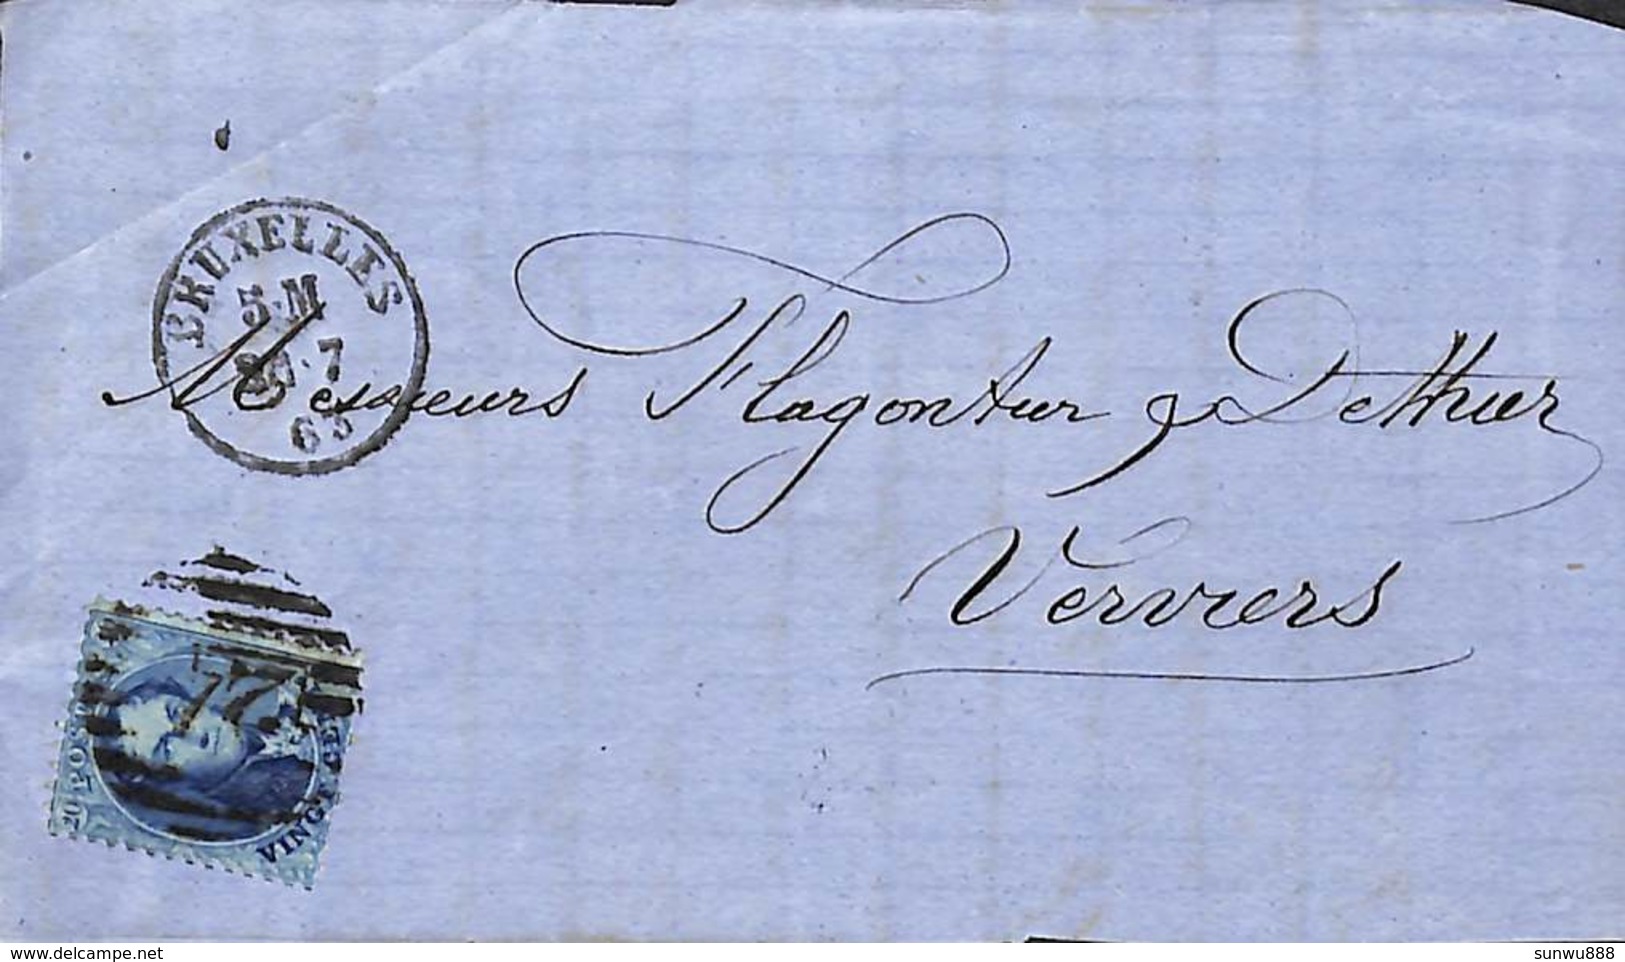 BRUXELLES
5·M
7
63
Messieurs Flagontier & Dethier
Verviers
77
20 POSTES VINGT CENT
delcampe.net
sunwu888